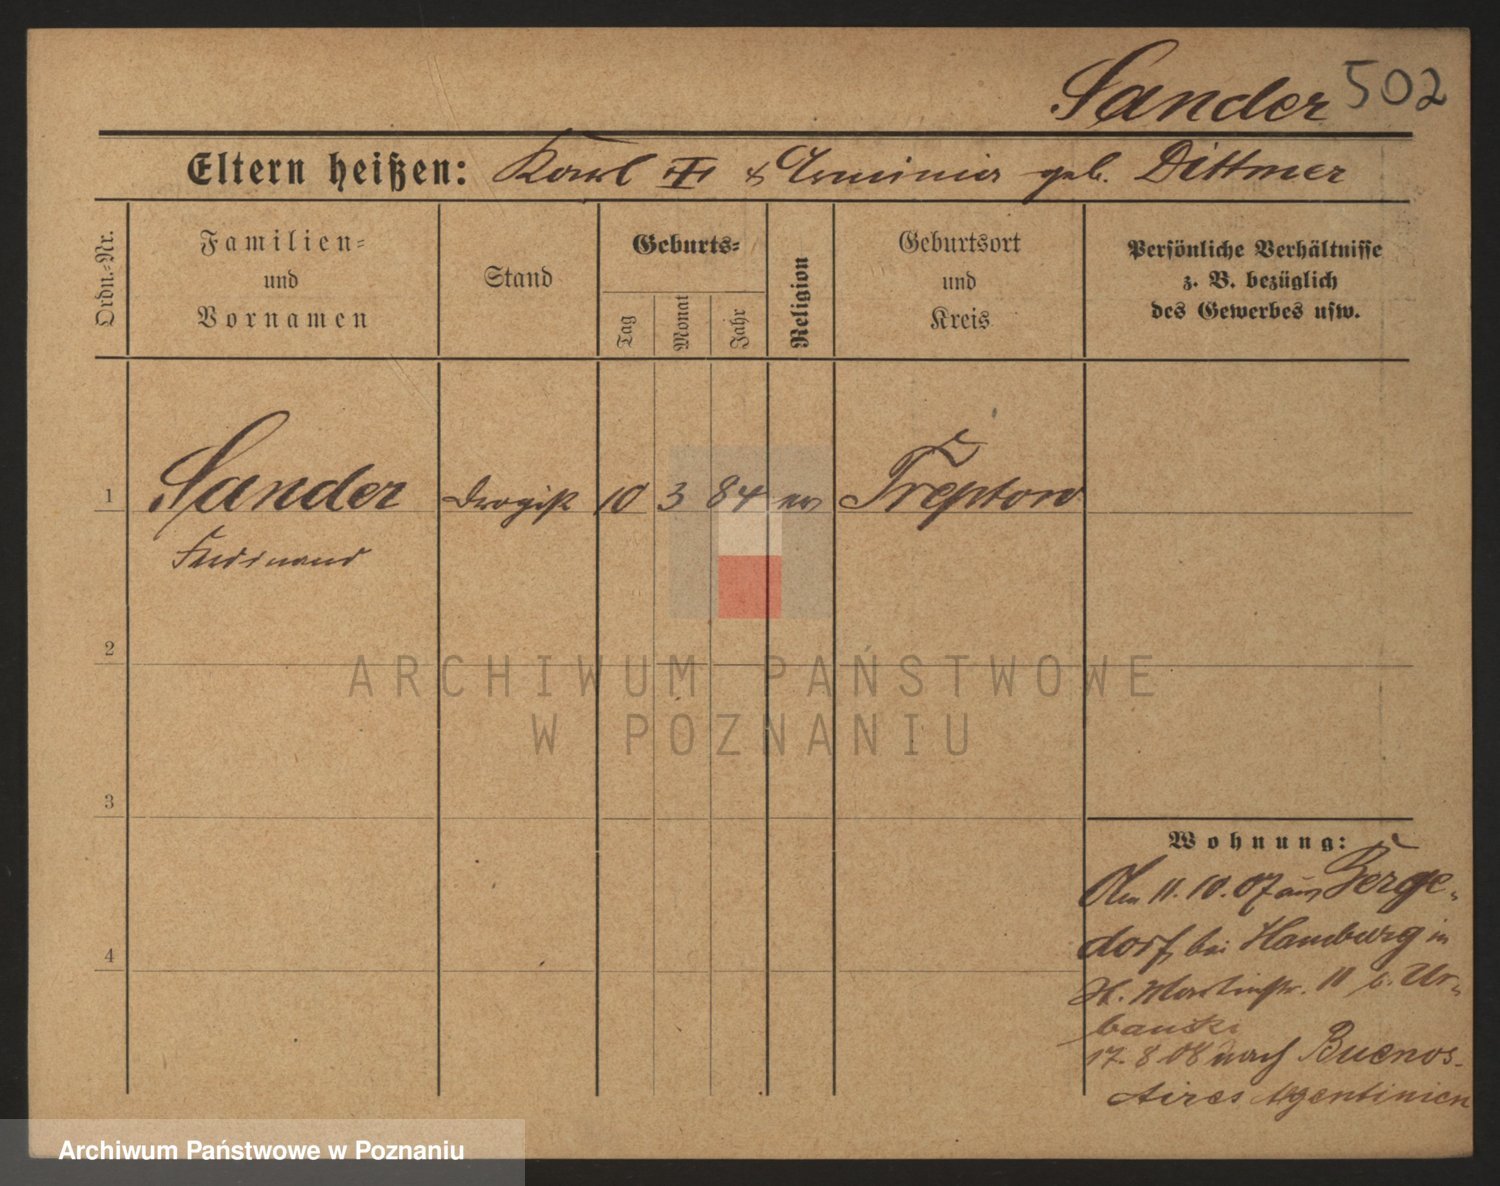 Sander 502
Eltern heißen: Karl III & Erminia geb. Dittmer
Ordn.-Nr.
Familien-
und
Vornamen
Stand
Geburts-
Tag
Monat
Jahr
Religion
Geburtsort
und
Kreis
Persönliche Verhältnisse
z. B. bezüglich
des Gewerbes usw.
1 Sander Drogist 10 3 84 ev Treptow
Ferdinand
2
3
4
Wohnung:
Am 11.10.07 aus Berge-
dorf bei Hamburg in
St. Martinstr. 11 b. Ur-
banski
17.8.08 nach Buenos-
Aires Argentinien
ARCHIWUM PAŃSTWOWE
W POZNANIU
Archiwum Państwowe w Poznaniu